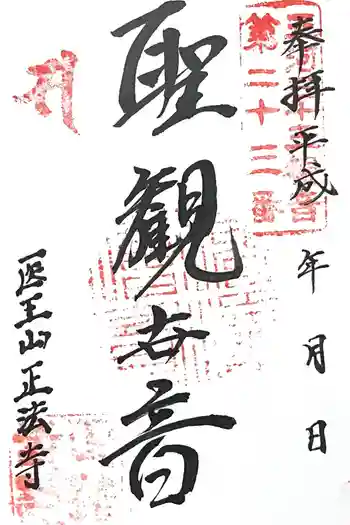 奉拝平成 年 月 日
第二十三番
聖観世音
医王山正法寺